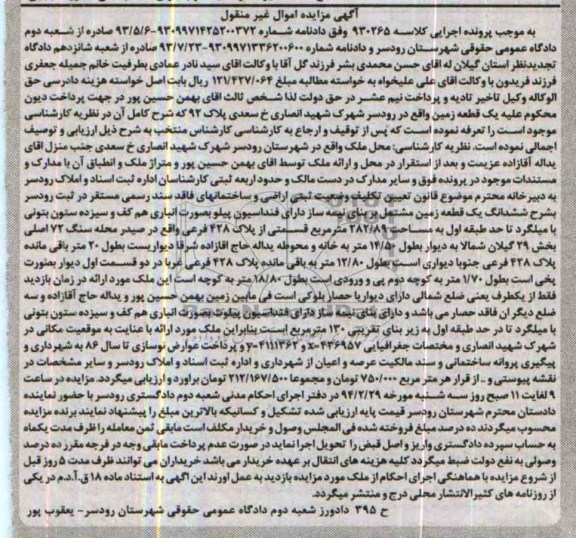 آگهی مزایده اموال غیر منقول
به موجب پرونده اجرایی کلاسه ۹۳۰۲۶۵ وفق دادنامه شماره ۹۳۰۹۹۷۱۴۲۵۲۰۰۳۷۲-۹۳/۵/۶ صادره از شعبه دوم
دادگاه عمومی حقوقی شهرستان رودسر و دادنامه شماره ۹۳۰۹۹۷۱۳۳۶۲۰۰۶۰۰-۹۳/۷/۲۳ صادره از شعبه شانزدهم دادگاه
تجدیدنظر استان گیلان له اقای حسن محمدی بشر فرزند گل آقا با وکالت اقای سید نادر عمادی بطرفیت خانم جمیله جعفری
فرزند فریدون با وکالت اقای علی علیخواه به خواسته مطالبه مبلغ ۱۲۱/۴۲۷/۰۶۴ ریال بابت اصل خواسته هزینه دادرسی حق
الوکاله وکیل تاخیر تادیه و پرداخت نیم عشر در حق دولت لذا شخص ثالث اقای بهمن حسین پور در جهت پرداخت دیون
محکوم علیه یک قطعه زمین واقع در رودسر شهرک شهید انصاری خ سعدی پلاک ۹۲ که شرح کامل آن در نظریه کارشناسی
موجود است را تعرفه نموده است که پس از توقیف و ارجاع به کارشناسی کارشناس منتخب به شرح ذیل ارزیابی و توصیف
اجمالی نموده است. نظریه کارشناسی: محل ملک واقع در شهرستان رودسر شهرک شهید انصاری خ سعدی جنب منزل اقای
یداله آقازاده عزیمت و بعد از استقرار در محل و ارائه ملک توسط اقای بهمن حسین پور و متراژ ملک و انطباق آن با مدارک و
مستندات موجود در پرونده فوق و سایر مدارک در دست مالک و حدود اربعه ثبتی کارشناسان اداره ثبت اسناد و املاک رودسر
به دبیرخانه محترم موضوع قانون تعیین تکلیف وضعیت ثبتی اراضی و ساختمانهای فاقد سند رسمی مستقر در ثبت رودسر
بشرح ششدانگ یک قطعه زمین مشتمل بر بنای نیمه ساز دارای فنداسیون پیلو بصورت انباری هم کف و سیزده ستون بتونی
با میلگرد تا حد طبقه اول به مساحت ۲۸۲/۸۹ مترمربع قسمتی از پلاک ۴۲۸ فرعی واقع در صیدر محله سنگ ۷۲ اصلی
بخش ۲۹ گیلان شمالا به دیوار بطول ۱۴/۵۰ متر به خانه و محوطه یداله حاج اقازاده شرقا دیواریست بطول ۲۰ متر باقی مانده
پلاک ۴۲۸ فرعی جنوبا دیواری است بطول ۱۲/۸۰ متر به باقی مانده پلاک ۴۲۸ فرعی غربا در دو قسمت اول دیوار بصورت
پخی است بطول ۱/۷۰ متر به کوچه دوم پی و ورودی است بطول ۱۸/۸۰ متر به کوچه است این ملک مورد ارائه در زمان بازدید
فقط از یکطرف یعنی ضلع شمالی دارای دیواریا حصار بلوکی است فی مابین زمین بهمن حسین پور و یداله حاج آقازاده و سه
ضلع دیگر ان فاقد حصار می باشد و دارای بنای نیمه ساز دارای فنداسیون پیلوت بصورت انباری هم کف و سیزده ستون بتونی
با میلگرد تا در حد طبقه اول به زیر بنای تقریبی ۱۳۰ مترمربع است بنابراین ملک مورد ارائه با عنایت به موقعیت مکانی در
شهرک شهید انصاری و مختصات جغرافیایی x-۴۳۶۹۵۷ و y-۴۱۱۱۳۶۲ و پرداخت عوارض نوسازی تا سال ۸۶ به شهرداری و
پیگیری پروانه ساختمانی و سند مالکیت عرصه و اعیان از شهرداری و اداره ثبت اسناد و املاک رودسر و سایر مشخصات در
نقشه پیوستی و... از قرار هر متر مربع ۷۵۰/۰۰۰ تومان و مجموعا ۲۱۲/۱۶۷/۵۰۰ تومان براورد و ارزیابی میگردد. مزایده در ساعت
۹ لغایت ۱۱ صبح روز سه شنبه مورخه ۹۴/۲/۲۹ در دفتر اجرای احکام مدنی شعبه دوم دادگستری رودسر با حضور نماینده
دادستان محترم شهرستان رودسر قیمت پایه ارزیابی شده تشکیل و کسانیکه بالاترین مبلغ را پیشنهاد نمایند برنده مزایده
محسوب میگردند ده درصد مبلغ فروخته شده فی المجلس وصول و خریدار مکلف است مابقی ثمن معامله را ظرف مدت یکماه
به حساب سپرده دادگستری واریز و اصل قبض را تحویل اجرا نماید در صورت عدم پرداخت مابقی وجه در فرجه مقرر ده درصد
وصولی به نفع دولت ضبط میگردد کلیه هزینه های انتقال بر عهده خریدار می باشد خریداران می توانند ظرف مدت ۵ روز قبل
از شروع مزایده با هماهنگی اجرای احکام از ملک مورد مزایده بازدید به عمل اورند این اگهی به استناد ماده ۱۱۸ ق.آ.د.م در یکی
از روزنامه های کثیرالانتشار محلی درج و منتشر میگردد.
ح ۳۹۵ دادورز شعبه دوم دادگاه عمومی حقوقی شهرستان رودسر- یعقوب پور